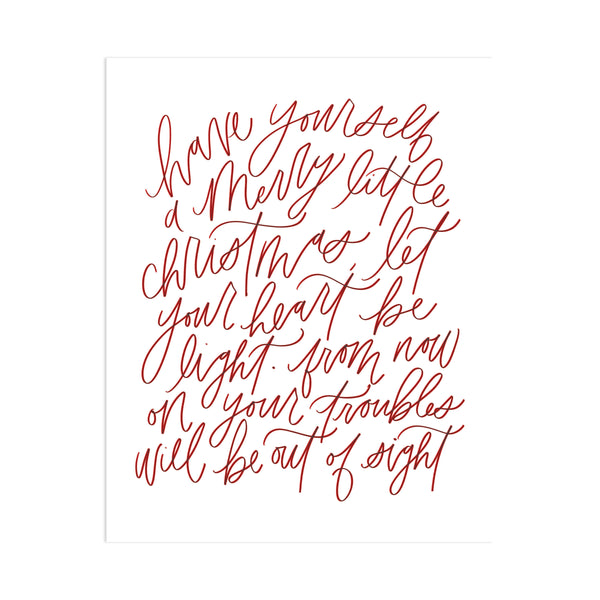 have yourself
a merry little
christmas, let
your heart be
light. from now
on your troubles
will be out of sight